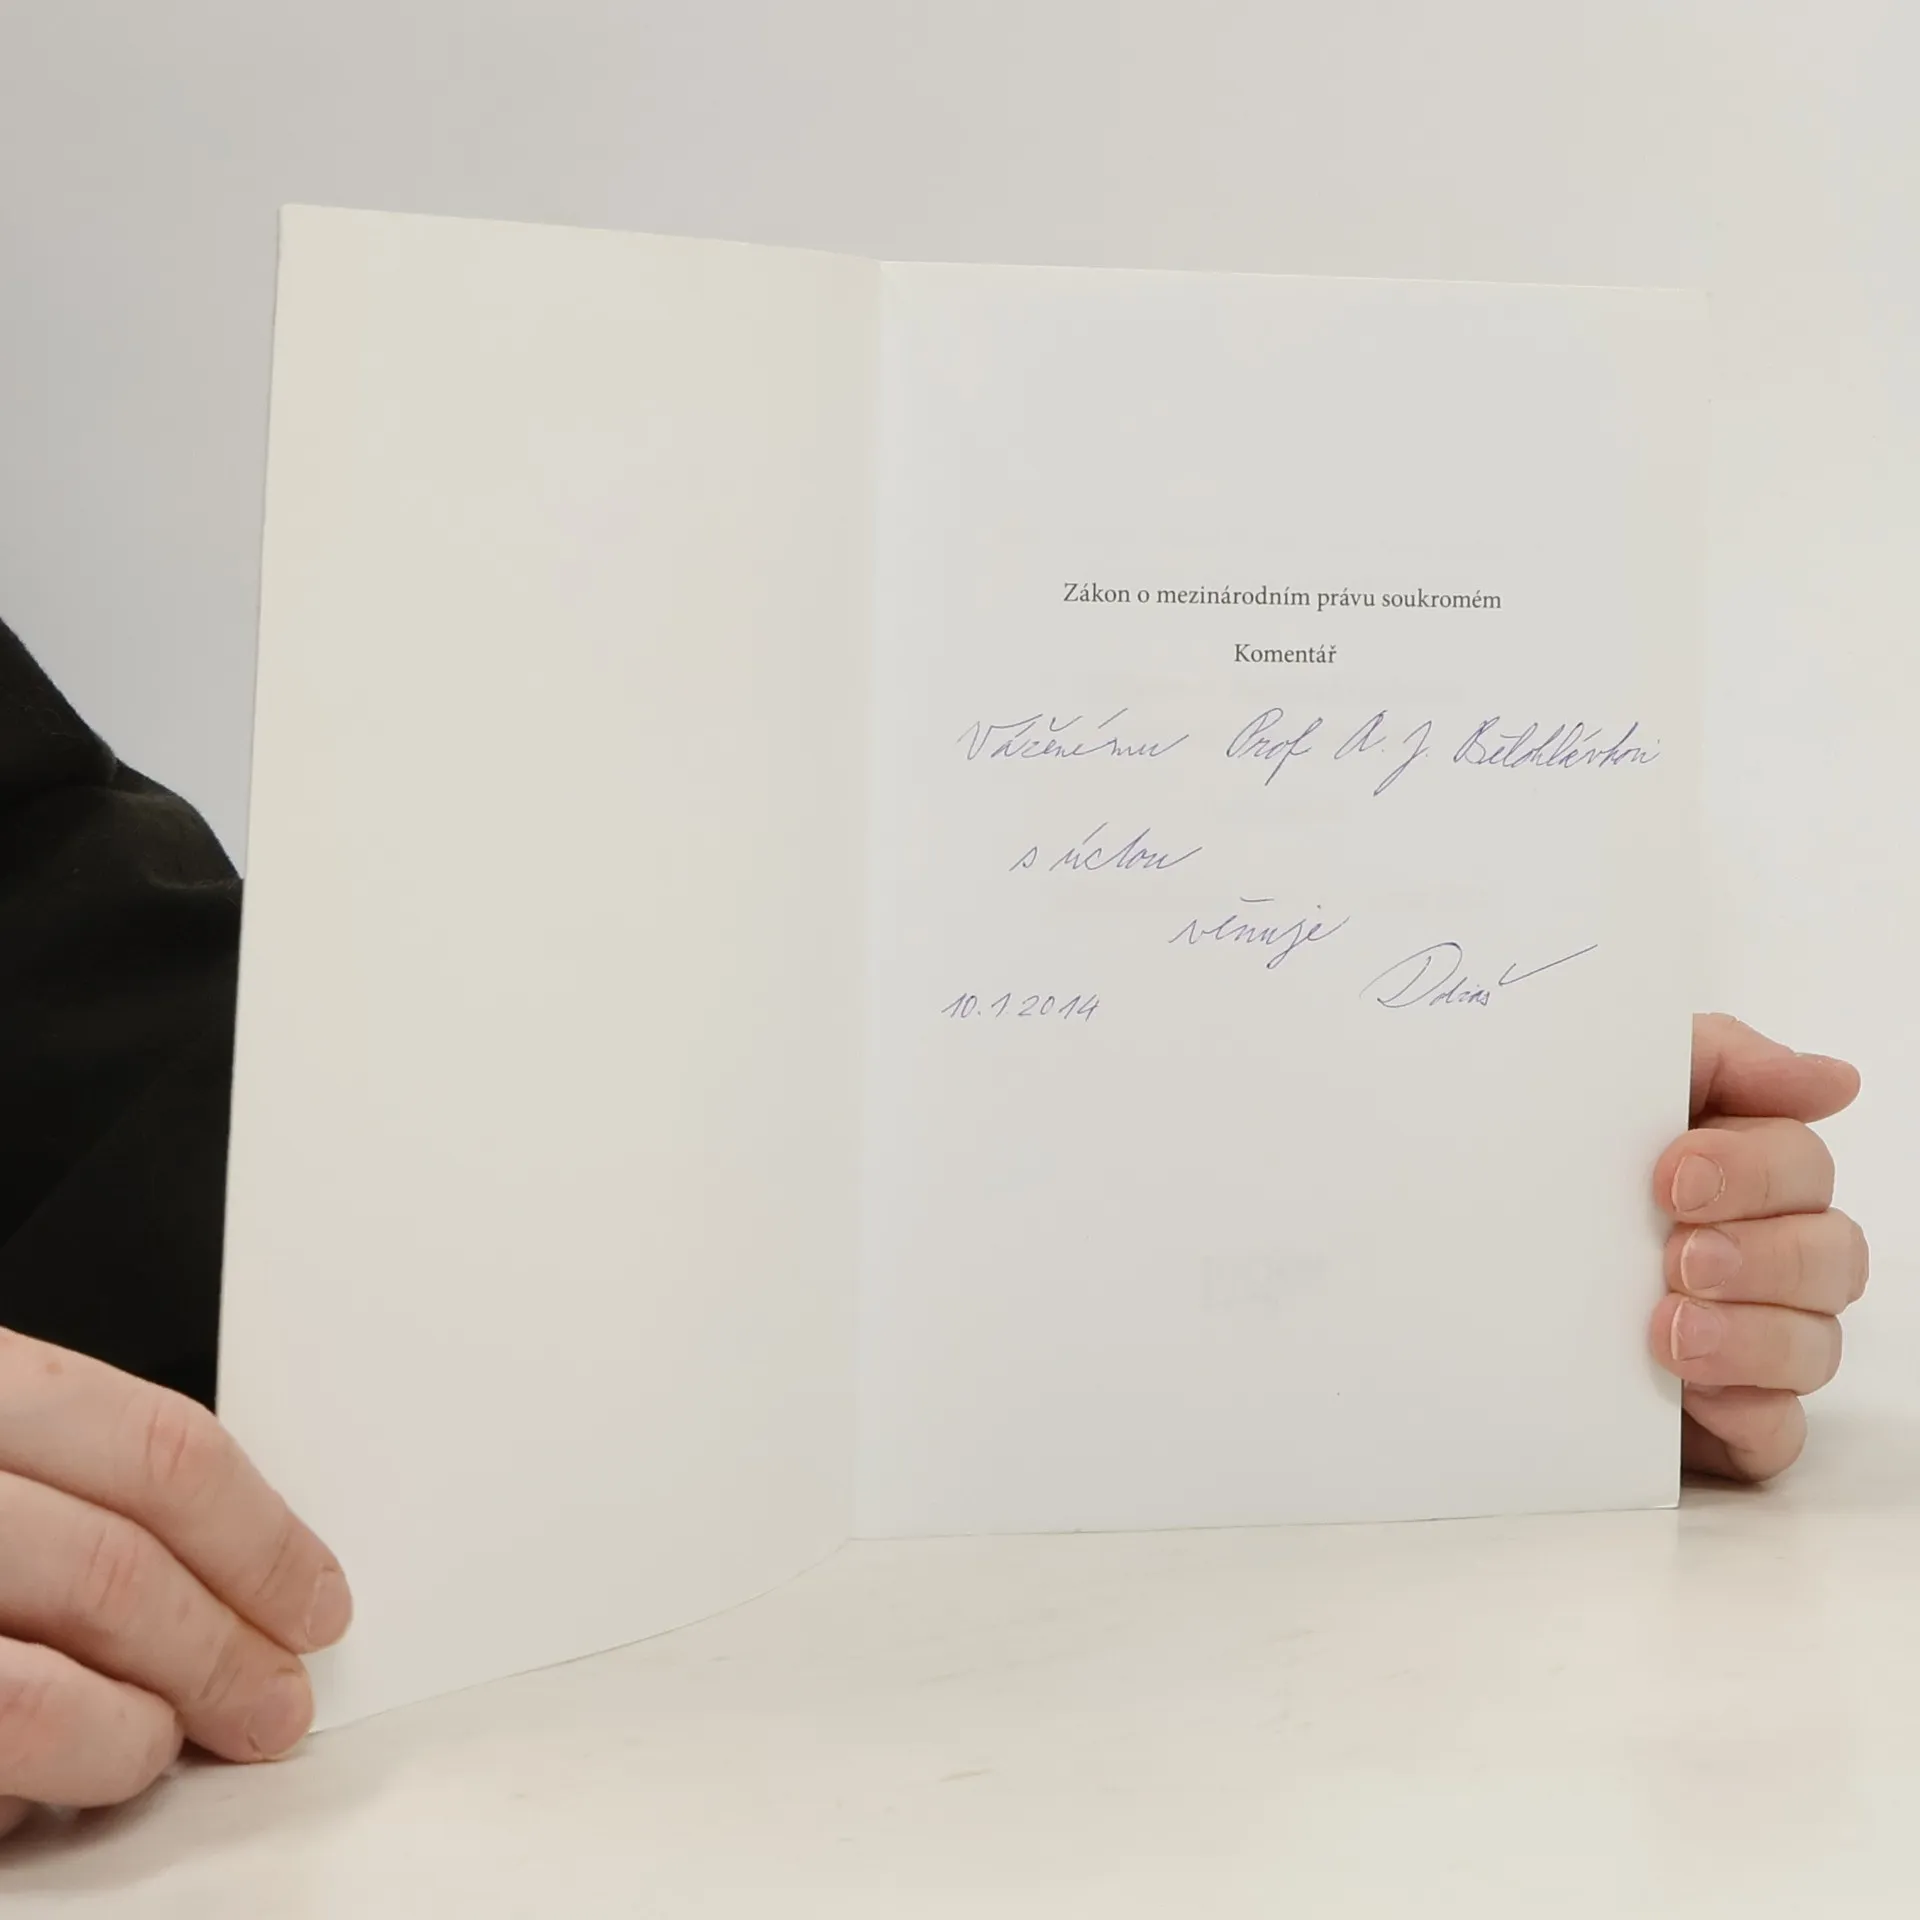 Zákon o mezinárodním právu soukromém
Komentář
Váženému Prof A. J. Bělohlávkovi
s úctou
věnuje
Dobiáš
10.1.2014